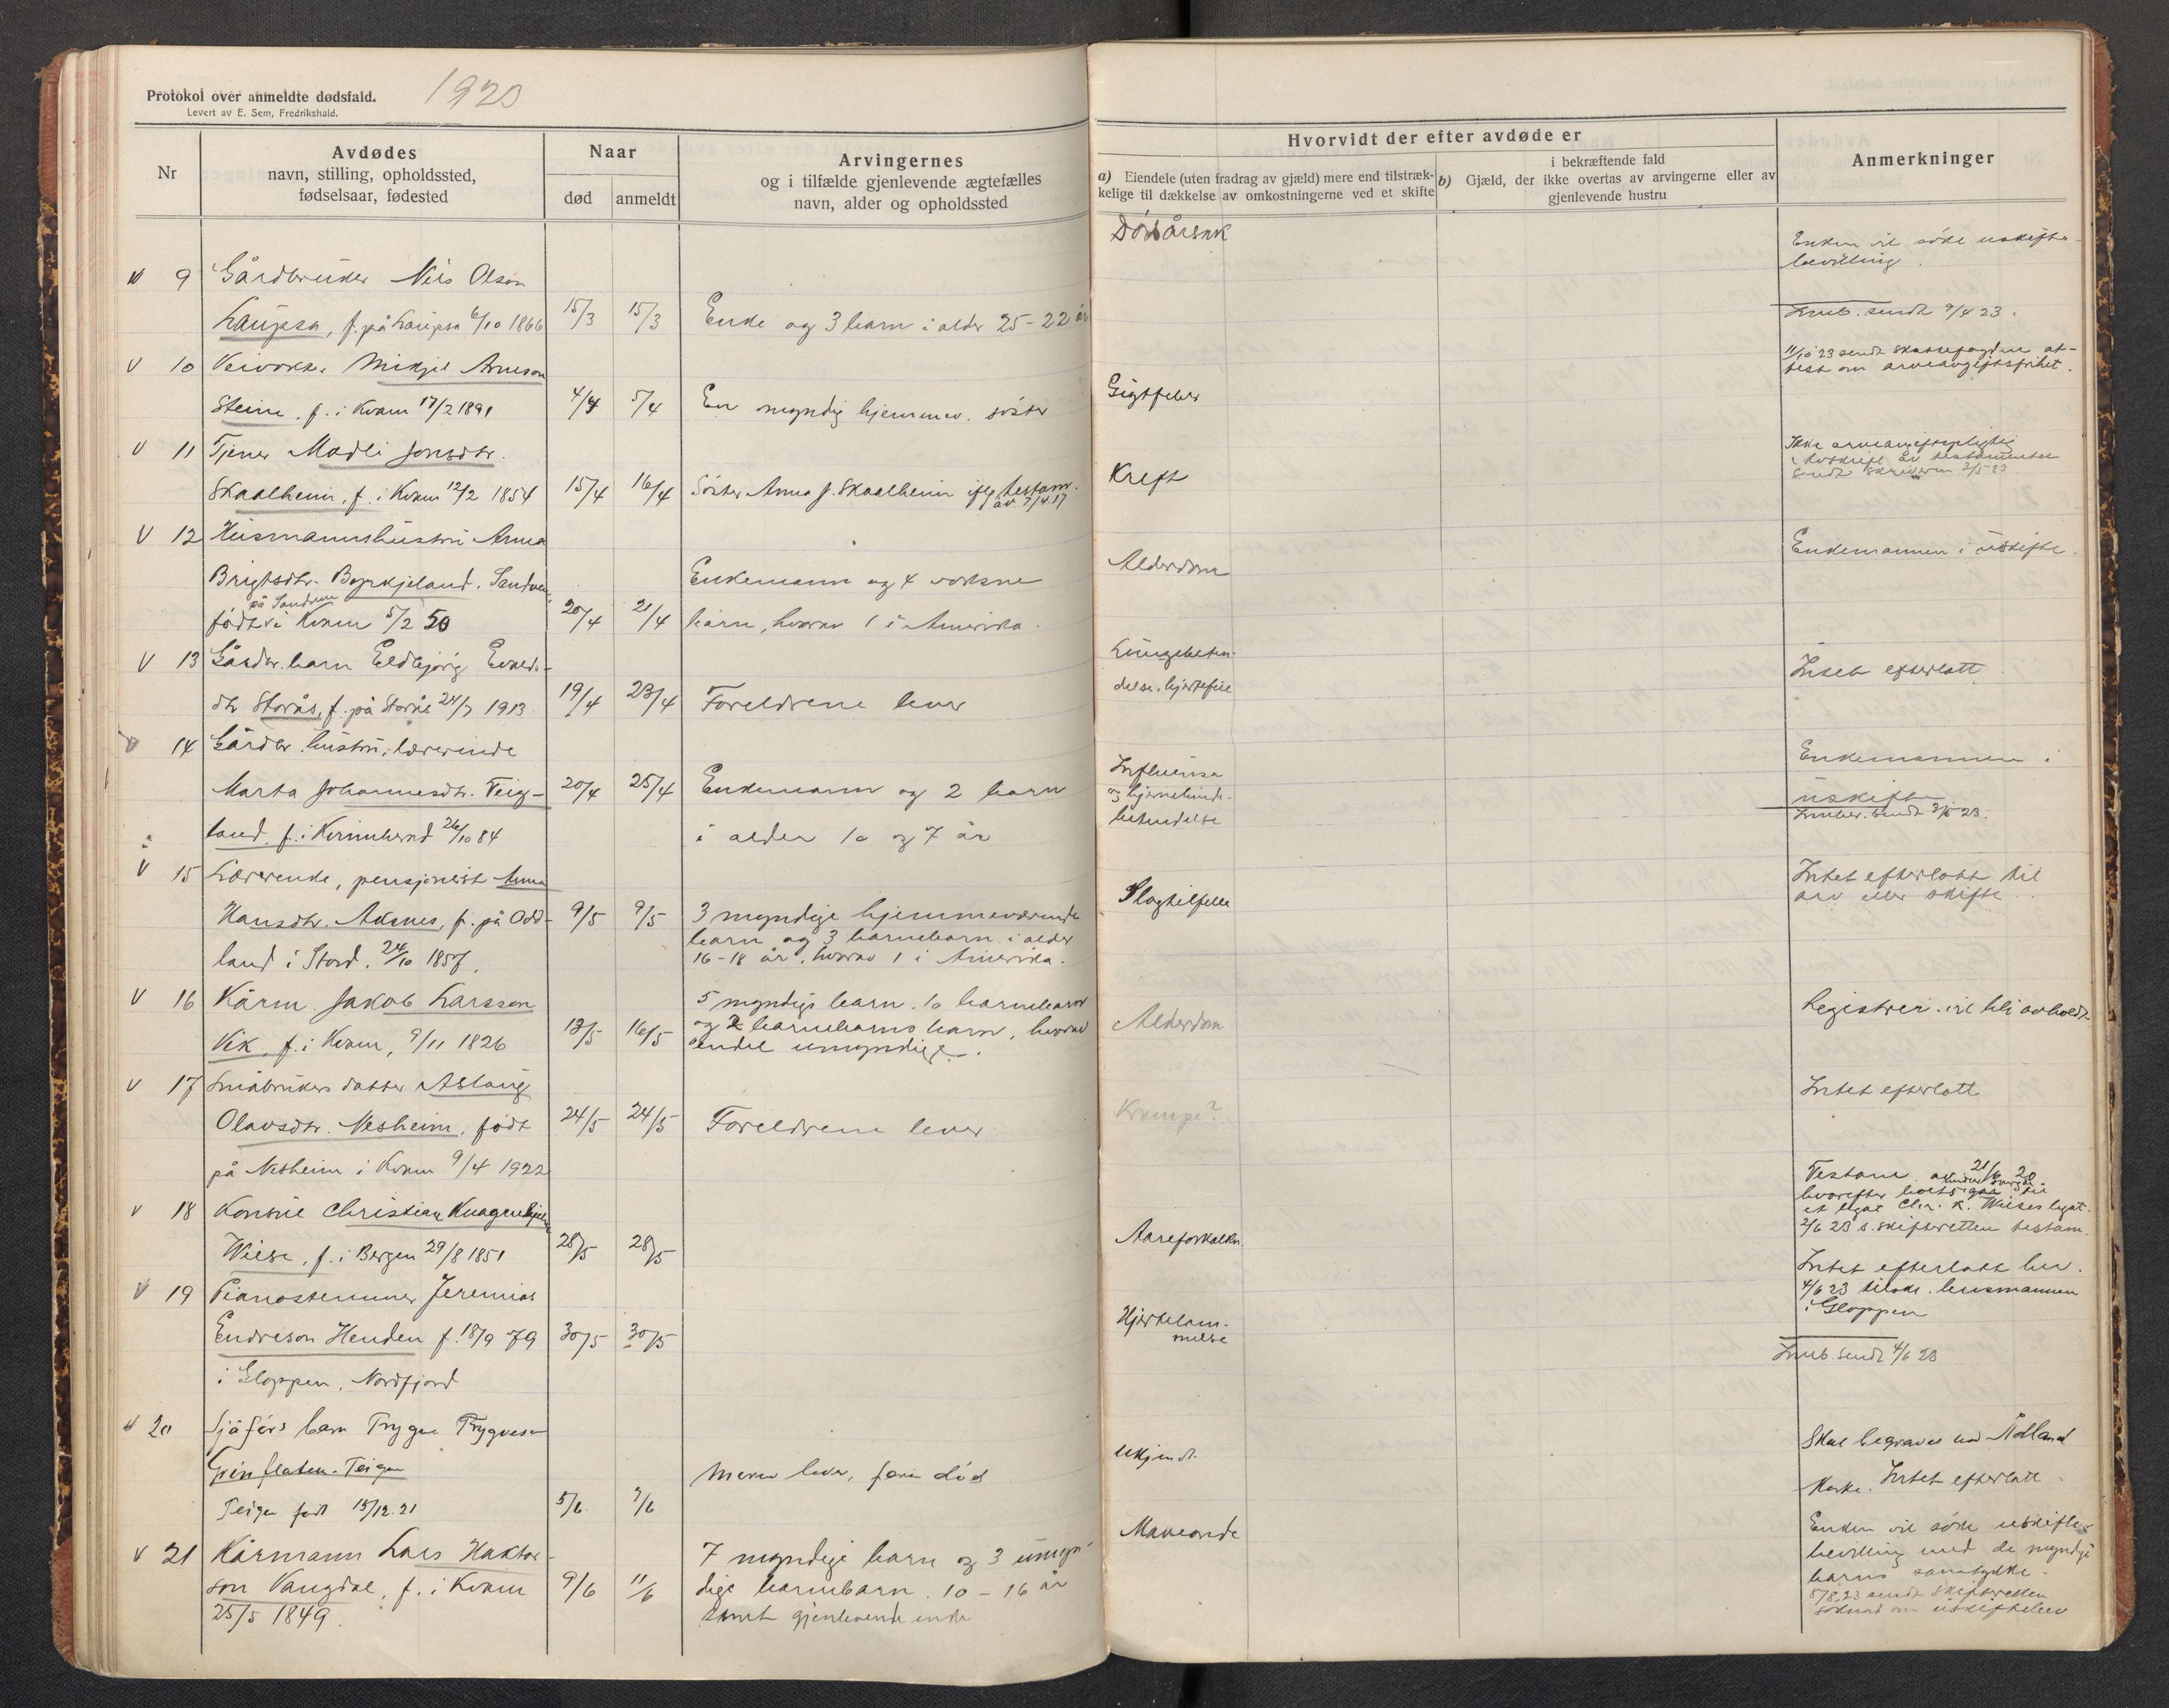 Protokol over anmeldte dødsfald.
1923
Levert av E. Sem, Fredrikshald.
Nr
Avdødes
navn, stilling, opholdssted,
fødselsaar, fødested
Naar
død
anmeldt
Arvingernes
og i tilfælde gjenlevende ægtefælles
navn, alder og opholdssted
Hvorvidt der efter avdøde er
a) Eiendele (uten fradrag av gjæld) mere end tilstræk-
kelige til dækkelse av omkostningerne ved et skifte
i bekræftende fald
b) Gjæld, der ikke overtas av arvingerne eller av
gjenlevende hustru
Anmerkninger
Dødsårsak
V 9 Gårdbruker Nils Olson
Laupsa, f. på Laupsa 6/10 1866 15/3 15/3 Enke og 3 barn i alder 25-22 år
Enken vil søke uskifte-
bevilling.
Innb. sendt 9/4 23.
V 10 Veivokter Mikjel Arneson
Steine, f. i Kvam 17/2 1891 4/4 5/4 En myndig hjemmev. søster
Gigtfeber
11/10 23 sendt skattefogden at-
test om arveavgiftsfrihet.
V 11 Tjener Madli Jonsdtr.
Skaalheim, f. i Kvam 12/2 1854 15/4 16/4 Søster Anna J. Skaalheim iflg. testam.
av 7/4 17
Kreft
Ikke arveavgiftspligtig
Avskrift av testamentet
sendt skriveren 3/5 23
V 12 Husmannshustru Anna
Brigtsdtr. Byrkjeland, Sandven,
på Sandven
født i Kvam 5/2 50 20/4 21/4
Enkemann og 4 voksne
barn, hvorav 1 i Amerika.
Alderdom
Enkemannen i uskifte.
V 13 Gårdbr. barn Eldbjørg
dtr Storås, f. på Storås 24/7 1913 19/4 23/4 Foreldrene lever
Lungebeten-
delse, hjertefeil
Intet efterlatt
V 14 Gårdbr. hustru, lærerinde
Marta Johannesdtr. Teig- 20/4 25/4 Enkemann og 2 barn
land, f. i Kvinnherad 26/10 84 i alder 10 og 7 år
Influensa
og hjernehinde-
betendelse
Enkemannen i
uskifte
Innber. sendt 3/5 23.
V 15 Lærerinde, pensjonist Anna
Hansdtr. Aksnes, f. på Odd- 9/5 9/5
land i Stord, 24/10 1857.
3 myndige hjemmeværende
barn og 3 barnebarn i alder
16-18 år, hvorav 1 i Amerika.
Slagtilfelle
Intet efterlatt til
arv eller skifte.
V 16 Kårm. Jakob Larsson
Vik, f. i Kvam, 9/11 1826 13/5 16/5
5 myndige barn. 10 barnebarn
og 2 barnebarns barn, hvorav
endel umyndige.
Alderdom
Registrer. vil bli avholdt
V 17 Småbrukers datter Aslaug
Olavsdtr. Nesheim, født 24/5 24/5 Foreldrene lever
på Nesheim i Kvam 9/4 1922
Krampe?
Intet efterlatt
V 18 Konsul Christian
Wiese, f. i Bergen 29/8 1851 28/5 28/5
Aareforkalkn.
Testam. av 21/6 20
hvorefter boet gaar til
et legat Chr. K. Wieses legat.
2/6 23 s. skifteretten testam.
V 19 Pianostemmer Jeremias
Endreson Henden f. 18/9 79 30/5 30/5
i Gloppen, Nordfjord
Hjertelam-
melse
Intet efterlatt her.
4/6 23 tilskr. lensmannen
i Gloppen
Innb. sendt 4/6 23
V 20 Sjåførs barn Trygve Trygveson
Grönflaten-Teigen
Teigen født 15/12.21 5/6 7/6
Moren lever, faren död
Ukjendt.
Skal begraves ved Ådland
Kirke. Intet efterlatt.
V 21 Kårmann Lars Haktor-
son Vangdal, f. i Kvam 9/6 11/6
25/5 1849.
7 myndige barn og 3 umyn-
dige barnebarn. 10-16 år
samt gjenlevende enke
Maveonde
Enken vil søke uskifte-
bevilling med de myndige
barns samtykke.
8/8.23 sendt skifteretten
søknad om uskiftebev